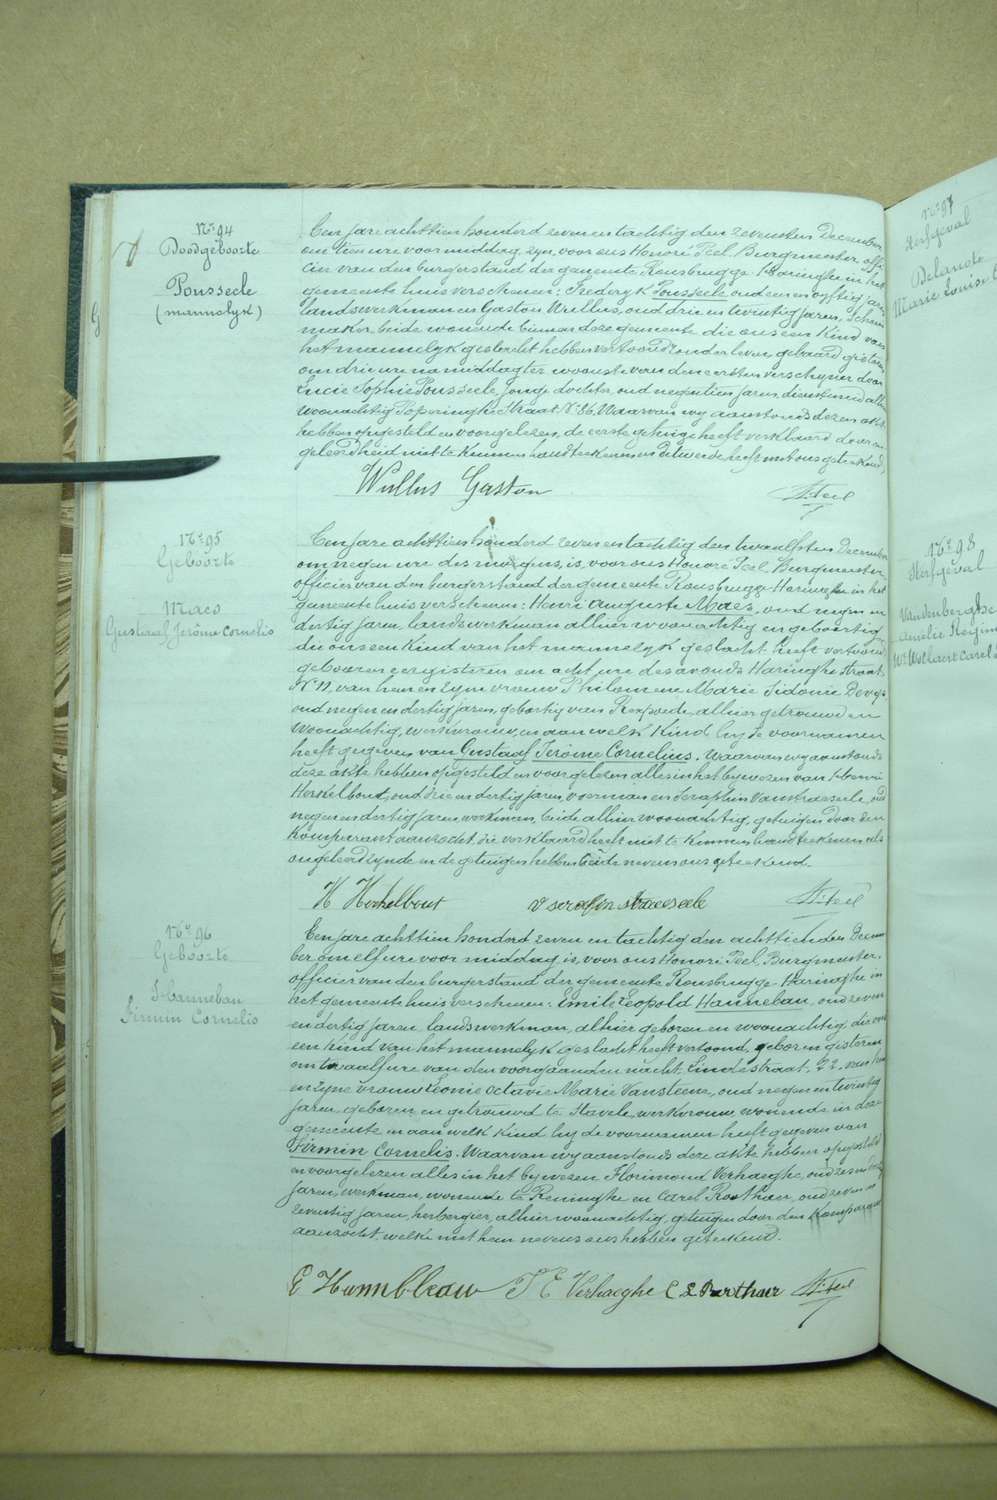 No 94
Doodgeboorte
Pousseele
(mannelyk)
Een jare achttien honderd zeven en tachtig den zevensten December
om tien ure voormiddag zyn, voor ons Honoré Peel, Burgmeester offi
cier van den burgerstand der gemeente Rousbrugge-Haringhe in het
gemeentehuis verschenen: Frederyk Pousseele oud een en vyftig jaren
landswerkman en Gaston Wullus, oud drie en twintig jaren, schoen
maker, beide woonende binnen deze gemeente die ons een kind van
het mannelyk geslacht hebben vertoond zonder leven gebaard gisteren
om drie ure namiddag ter woonste van den eersten verschyner door
Lucie Sophie Pousseele, jonge dochter, oud negentien jaren, dienstmeid alhier
woonachtig Poperinghe Straat No 86. Waarvan wy aanstonds dezen akt
hebben opgesteld en voorgelezen, de eerste getuige heeft verklaard door on
geleerdheid niet te kunnen handteekenen en de tweede heeft met ons geteekend,
Wullus Gaston
H. Peel
No 95
Geboorte
Maes
Gustaaf Jerôme Cornelis
Een jare achttien honderd zeven en tachtig den twaalfsten December
om negen ure des morgens, is, voor ons Honoré Peel Burgmeester
officier van den burgerstand der gemeente Rousbrugge Haringhe in het
gemeentehuis verschenen: Henri Auguste Maes, oud negen en
dertig jaren, landswerkman alhier woonachtig en geboortig
die ons een kind van het mannelyk geslacht heeft vertoond
geboren eergisteren om acht ure des avonds Haringhe straat
No 11, van hem en zyne vrouw Philomene Marie Sidonie Devys
oud negen en dertig jaren, geboortig van Rexpoede, alhier getrouwd en
woonachtig, werkvrouw, en aan welk kind hy de voornamen
heeft gegeven van Gustaaf Jerôme Cornelius. Waarvan wy aanstonds
deze akte hebben opgesteld en voorgelezen alles in het bywezen van Henri
Herkelbout, oud drie en dertig jaren, voerman en Seraphin Vanstraeseele, oud
negen en dertig jaren, werkman, beide alhier woonachtig, getuigen door den
Komparant aanzocht die verklaard heeft niet te kunnen handteekenen als
ongeleerd zynde en de getuigen hebben beide nevens ons geteekend.
H Herkelbout
v serafin straeseele
H. Peel
No 96
Geboorte
Hannebau
Firmin Cornelis
Een jare achttien honderd zeven en tachtig den achttienden Decem
ber om elf ure voormiddag is, voor ons Honoré Peel Burgmeester,
officier van den burgerstand der gemeente Rousbrugge-Haringhe in
het gemeentehuis verschenen: Emile Leopold Hannebau, oud zeven
en dertig jaren, landswerkman, alhier geboren en woonachtig die ons
een kind van het mannelyk geslacht heeft vertoond, geboren gisteren
om twaalf ure van den voorgaanden nacht Lindestraat 22, van hem
en zyne vrouw Leonie Octavie Marie Vansteene, oud negen en twintig
jaren, geboren en getrouwd te Stavele, werkvrouw, wonende in deze
gemeente en aan welk kind hy de voornamen heeft gegeven van
Firmin Cornelis. Waarvan wy aanstonds deze akte hebben opgesteld
en voorgelezen alles in het bywezen Florimond Verhaeghe, oud zes en dertig
jaren, werkman, wonende te Reninghe en Carel Roothaer, oud zeven en
zeventig jaren, herbergier, alhier woonachtig, getuigen door den Komparant
aanzocht welke met hem nevens ons hebben geteekend.
E Hannebleau
F E Verhaeghe
H. Peel
No 97
Sterfgeval
Delanote
Marie Louise
No 98
Sterfgeval
Vandenberghe
Amelie Regin
We Wolbaert Carel